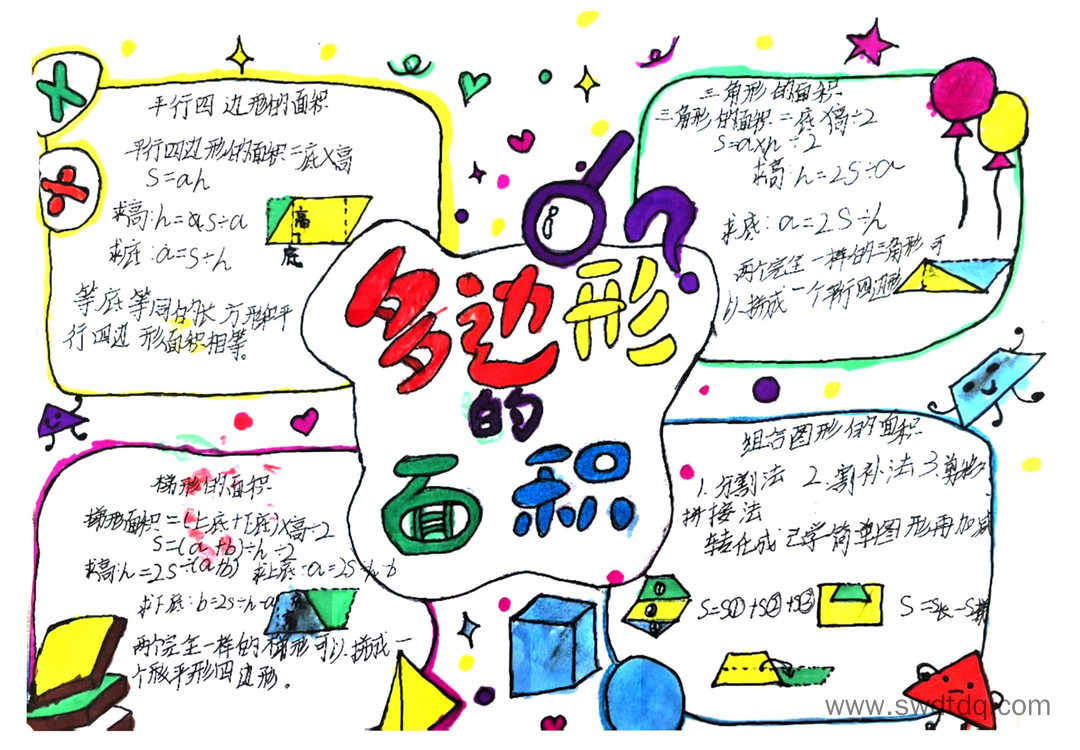 多边形
的
面积
平行四边形的面积
平行四边形的面积=底×高
S=ah
求高:h=S÷a
求底:a=S÷h
高
底
等底等同的长方形和平
行四边形面积相等。
三角形的面积
三角形的面积=底×高÷2
S=a×h÷2
求高:h=2S÷a
求底:a=2S÷h
两个完全一样的三角形可
以拼成一个平行四边形
梯形的面积
梯形面积=(上底+下底)×高÷2
S=(a+b)÷h÷2
求高:h=2S÷(a+b) 求上底:a=2S÷h-b
求下底:b=2s÷h-a
两个完全一样的梯形可以拼成一
个形平形四边形。
组合图形的面积
1.分割法 2.割补法 3.剪
拼接法
转化成已学简单图形再加减
① ② ③
S=S①+S②+S③
S=S长-S梯
www.swdtdq.com